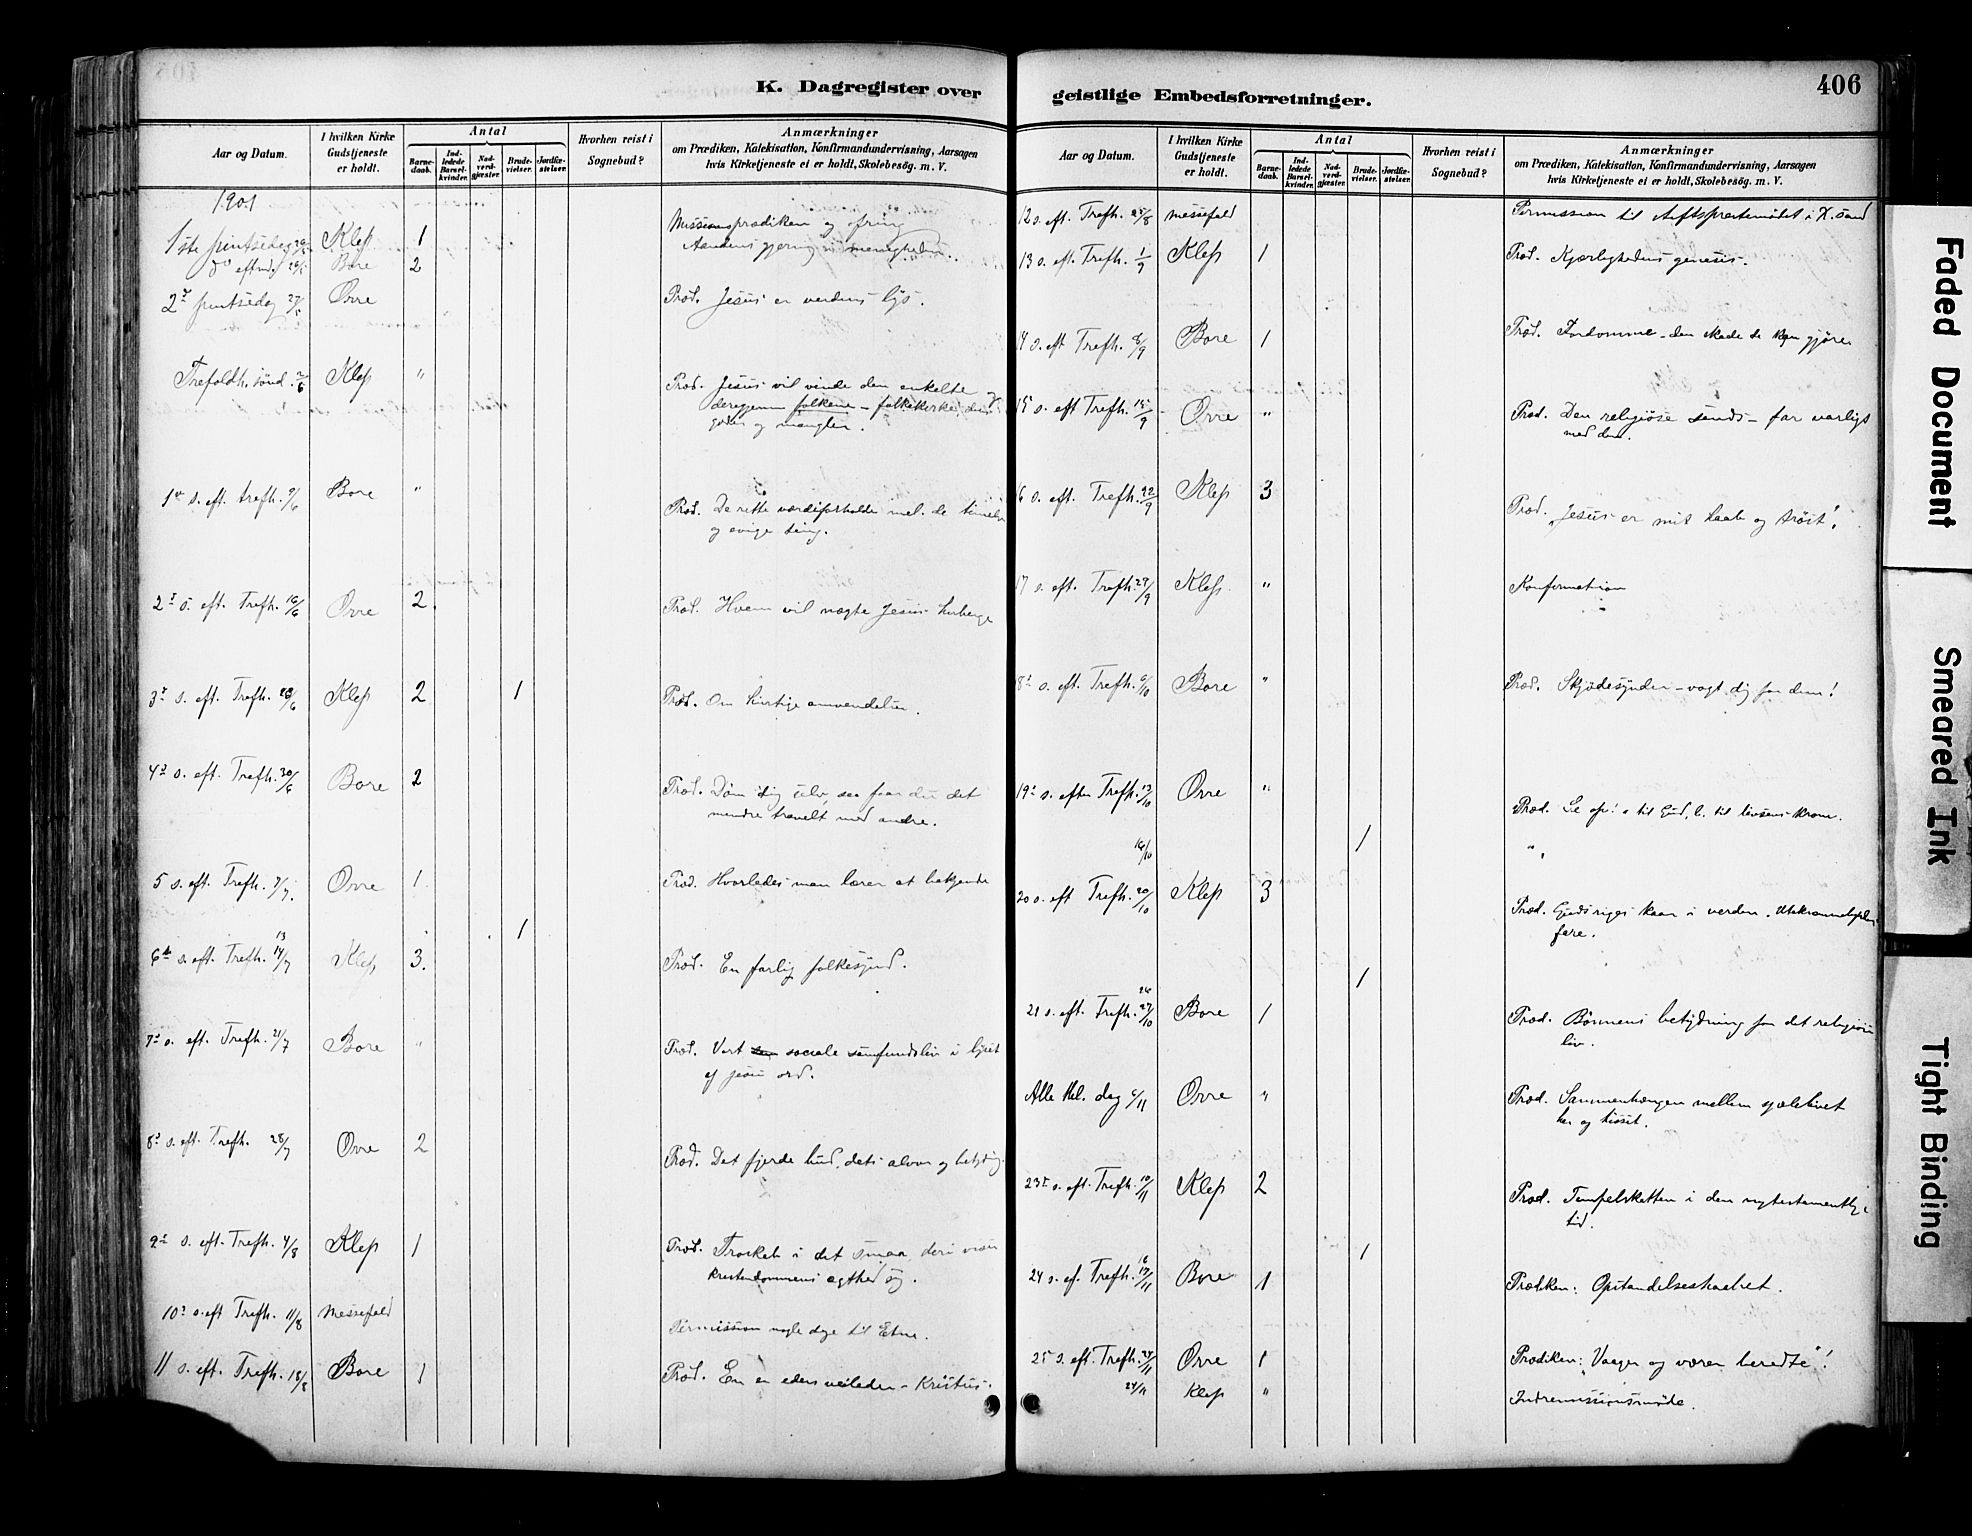 K. Dagregister over
Aar og Datum.
I hvilken Kirke Gudstjeneste er holdt.
Antal
Barne-daab.
Ind-ledede Barsel-kvinder.
Nad-verd-gjæster.
Brude-vielser.
Jordfæ-stelser.
Hvorhen reist i Sognebud?
Anmærkninger
om Prædiken, Katekisation, Konfirmandundervisning, Aarsagen
hvis Kirketjeneste ei er holdt, Skolebesøg. m. V.
1901
1ste pintsedag 26/5 Klep 1 Missionsprædiken og ofring
Aandens gjerning i menigheden.
do eftmd. 26/5 Bore 2
2d pintsedag 27/5 Orre Præd. Jesus er verdens lys.
Trefoldh. sønd. 2/6 Klep " Præd. Jesus vil vinde den enkelte
derigjennem folkene - folkekirke, dens
goder og mangler.
1ste s. eft. trefh. 9/6 Bore " Præd. De rette værdiforholde mel. de timelige
og evige ting.
2d s. eft. Trefh. 16/6 Orre 2. Præd. Hvem vil nægte Jesus herberge
3d s. eft. Trefh. 23/6 Klep 2 1 Præd. Om hurtige omvendelser.
4d s. eft. Trefh. 30/6 Bore 2 Præd. Døm dig selv, saa faar du det
mindre travelt med andre.
5 s. eft. Trefh. 7/7. Orre 1 Præd. Hvorledes man lærer at bekjende
13 1
6te s. eft. Trefh. 14/7 Klep 3. Præd. En farlig folkesynd.
7d s. eft. Trefh. 21/7 Bore " Præd. Vort sociale samfundsliv i lyset
af Jesu ord.
8d s. eft. Trefh. 28/7 Orre 2 Præd. Det fjerde bud, dets alvor og betydng.
9d s. eft. Trefh. 4/8 Klep 1 Præd. Troskab i det smaa, deri viser
kristendommens ægthed sig.
10d s. eft Trefh. 11/8 Messefald Permission nogle dage til Etne.
11 s. eft. Trefh. 18/8 Bore 1 Præd. En er eders veileder - Kristus.
geistlige Embedsforretninger.
406
Aar og Datum.
I hvilken Kirke Gudstjeneste er holdt.
Antal
Barne-daab.
Ind-ledede Barsel-kvinder.
Nad-verd-gjæster.
Brude-vielser.
Jordfæ-stelser.
Hvorhen reist i Sognebud?
Anmærkninger
om Prædiken, Katekisation, Konfirmandundervisning, Aarsagen
hvis Kirketjeneste ei er holdt, Skolebesøg. m. V.
12 s. eft. Trefh. 25/8 Messefald Permission til stiftspræstemødet i K.sand
13 s. eft. Trefh. 1/9 Klep 1 Præd. Kjærlighedens genesis.
14 s. eft Trefh. 8/9 Bore 1 Præd. Fordomme - den skade de kan gjøre.
15 s. eft Trefh. 15/9 Orre " Præd. Den religiøse sands - far varligt
med den.
16 s. eft. Trefh. 22/9 Klep 3 Præd. "Jesus er mit haab og trøst".
17 s. eft. Trefh. 29/9 Klep. " Konfirmation
18d s. eft. Trefh. 6/10 Bore " Præd. Skjødesynder - vogt dig for dem!
19d s. efter Trefh. 13/10 Orre " Præd. Se op! a. til Gud, b. til livsens krone.
16/10 1 "
20 s. eft Trefh. 20/10 Klep 3 Præd. Guds riges kaar i verden.
fare.
26 1
21 s. eft. Trefh. 27/10 Bore 1 Præd. Børnenes betydning for det religiøse
liv.
Alle Hel. dag Orre " Præd. Sammenhængen mellem sjælelivet
her og hisset.
23d s. eft. Trefh. 10/11 Klep 2 Præd. Tempelskatten i den nytestamentlige
tid.
16 1
24 s. ef. Trefh. 17/11 Bore 1 Prædiken: Opstandelseshaabet.
25 s. eft. Trefh. 24/11 Orre 1 Prædiken: "Vaager og værer beredte"!
24/11 Klep " Indremissionsmøde.
Faded Document
Smeared Ink
Tight Binding